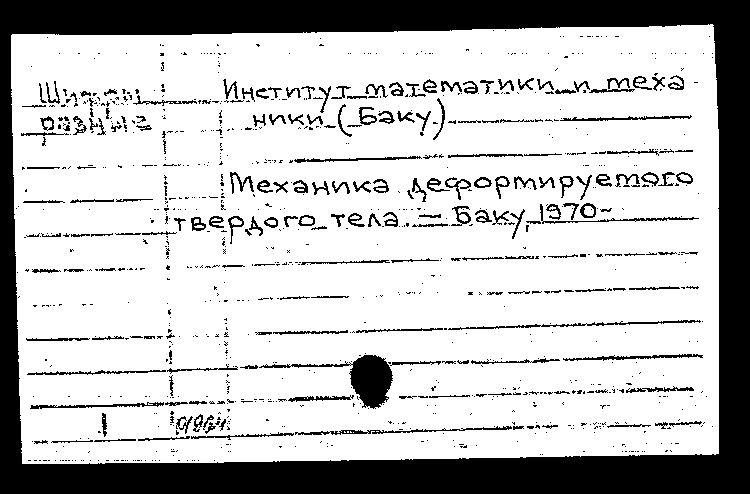 Шифры
разные
Институт математики и меха
ники (Баку)
Механика деформируемого
твердого тела. — Баку, 1970-
1